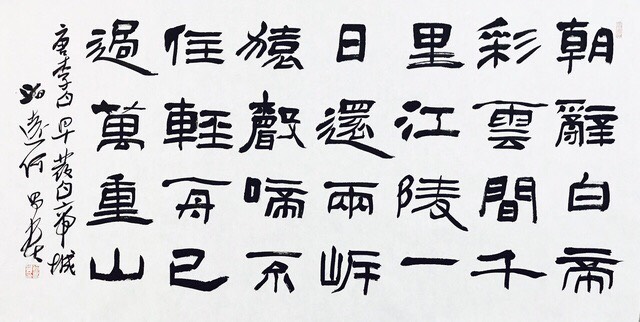 朝辭白帝
彩雲間千
里江陵一
日還兩岸
猿聲啼不
住輕舟已
過萬重山
唐李白早發白帝城